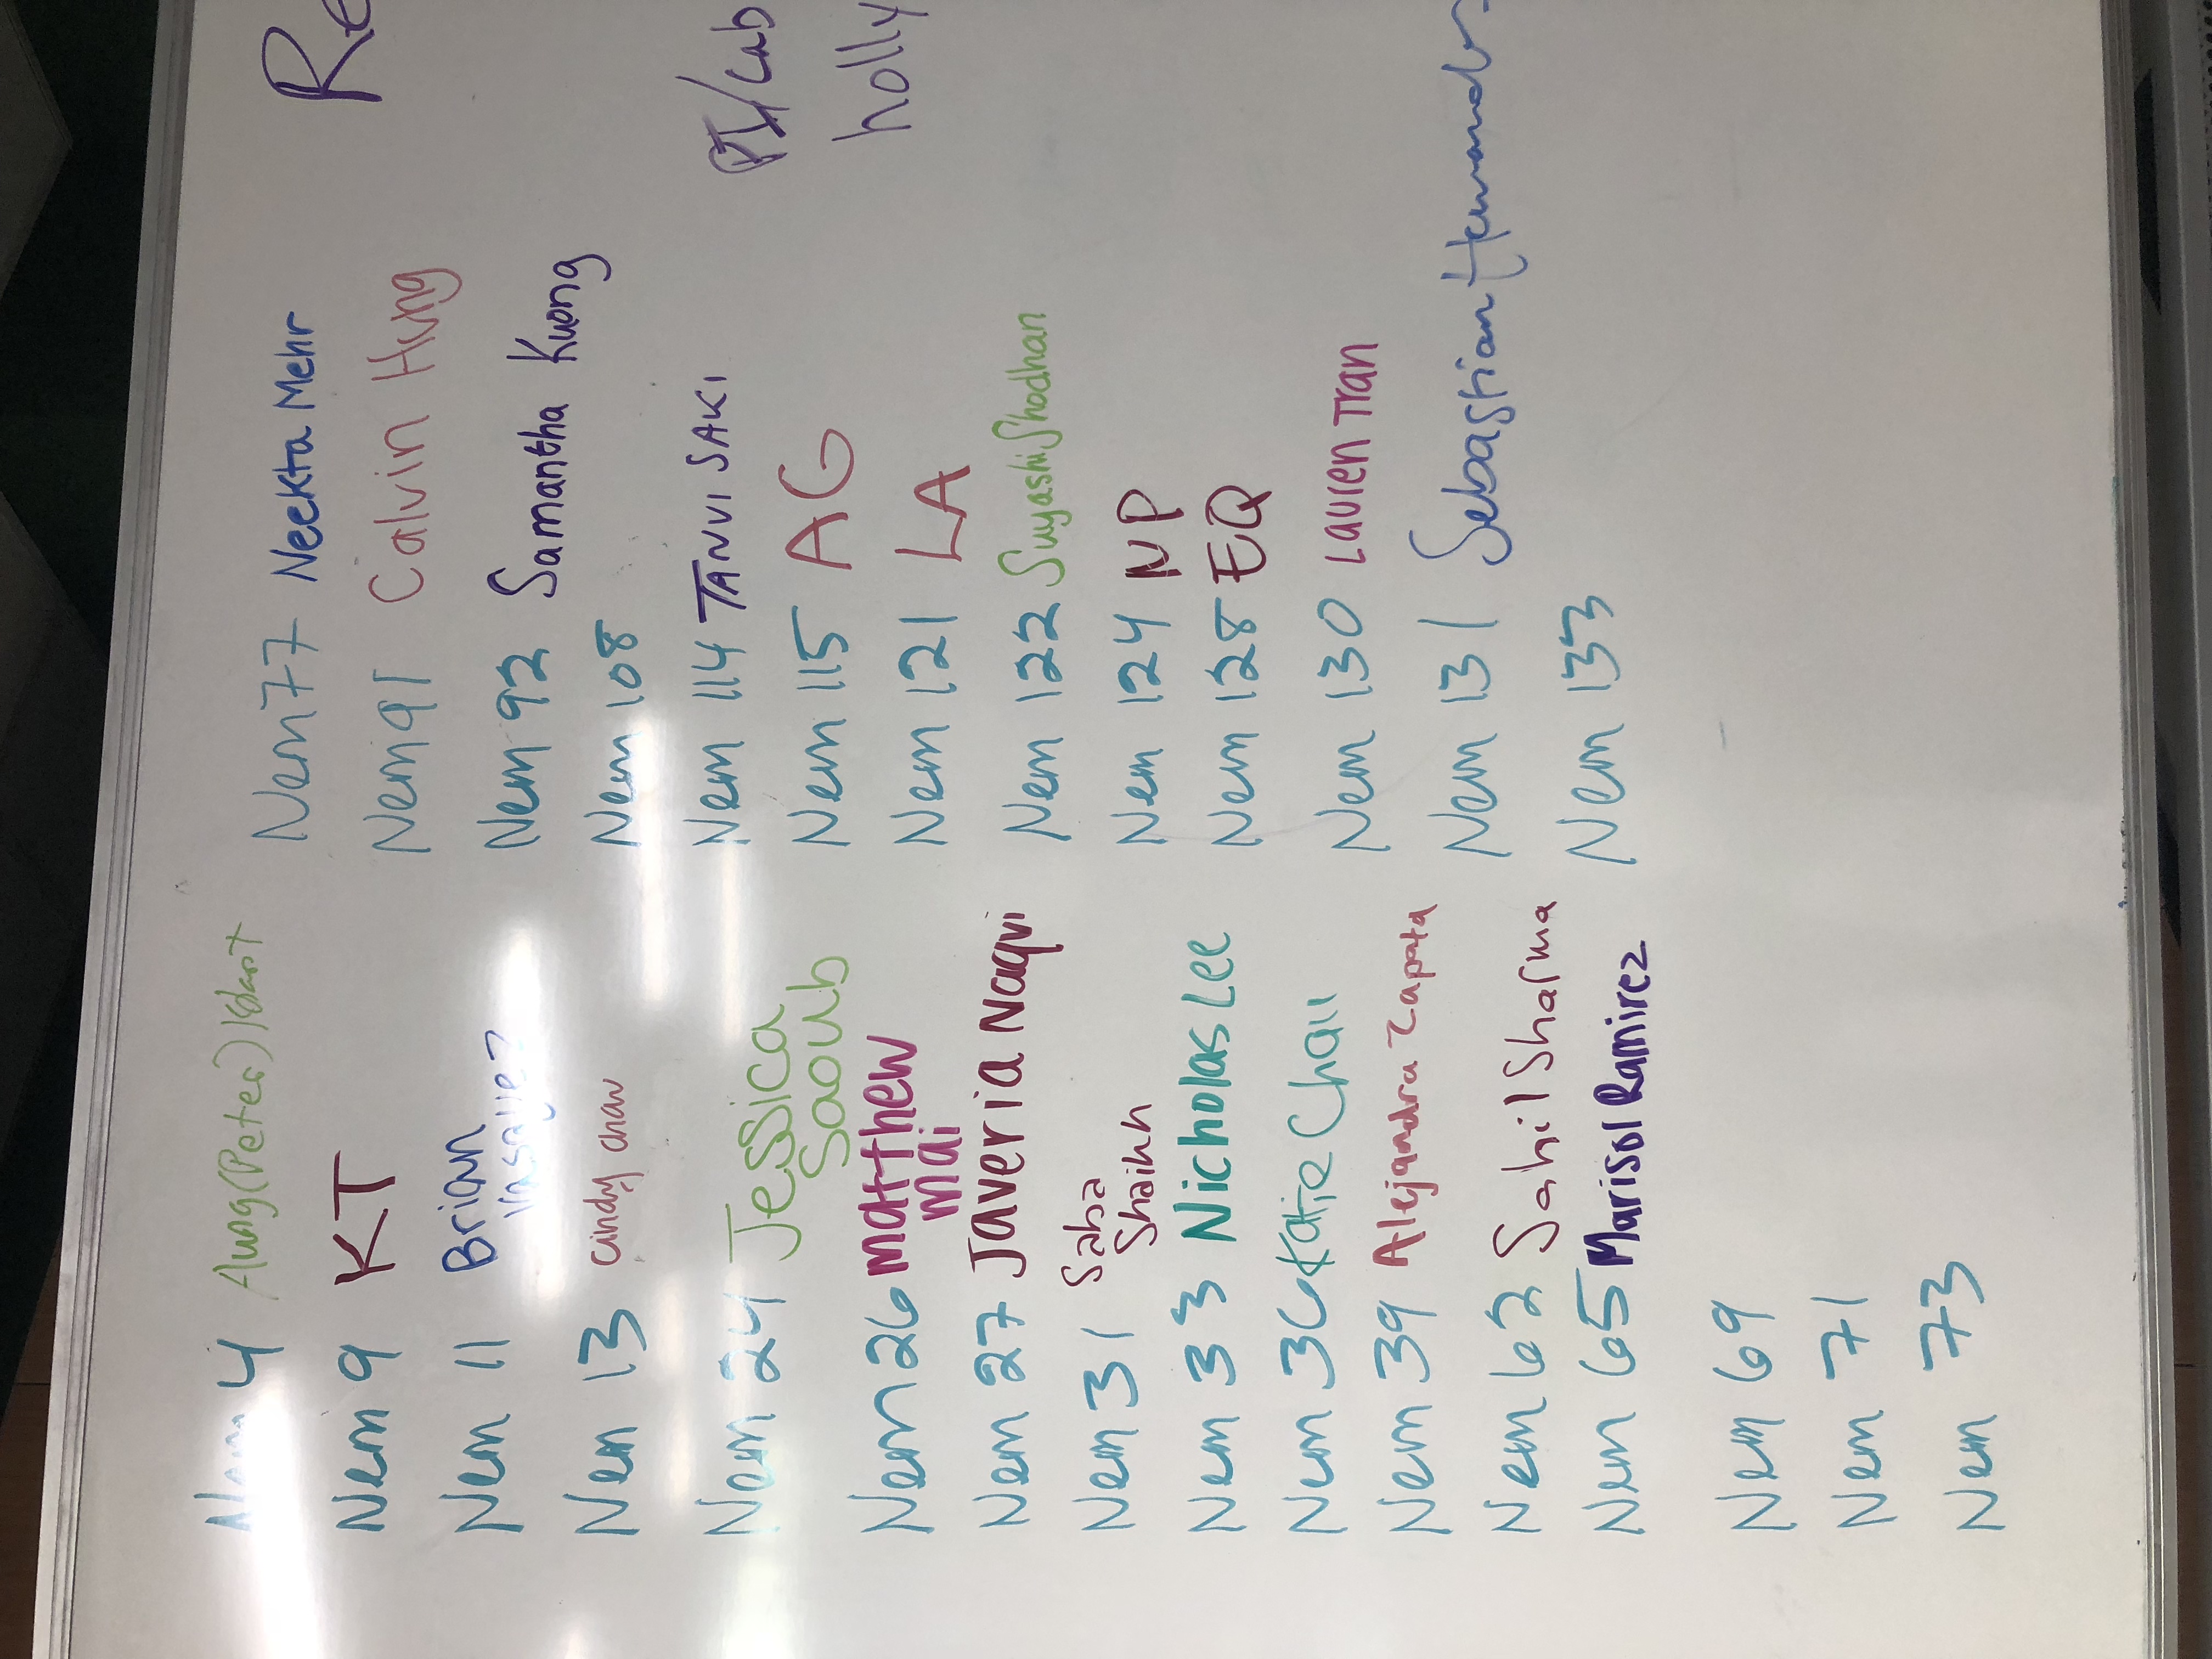 Nem 4 Aung (Peter)
Nem 9 KT
Nem 11 Brian
Vasquez
Nem 13 Cindy Chau
Nem 24 Jessica
Saoub
Nem 26 Matthew
Mai
Nem 27 Javeria Naqvi
Nem 31 Saba
Shaikh
Nem 33 Nicholas Lee
Nem 36 Katie Chau
Nem 39 Alejandra Zapata
Nem 62 Sahil Sharma
Nem 65 Marisol Ramirez
Nem 69
Nem 71
Nem 73
Nem 77 Neekta Mehr
Nem 91 Calvin Hung
Nem 92 Samantha Kuong
Nem 108
Nem 114 TANVI SAKI
Nem 115 AG
Nem 121 LA
Nem 122 Suyashi Shodhan
Nem 124 NP
Nem 128 EQ
Nem 130 Lauren Tran
Nem 131 Sebastian Hernandez
Nem 133
Re
PI/Lab
holly